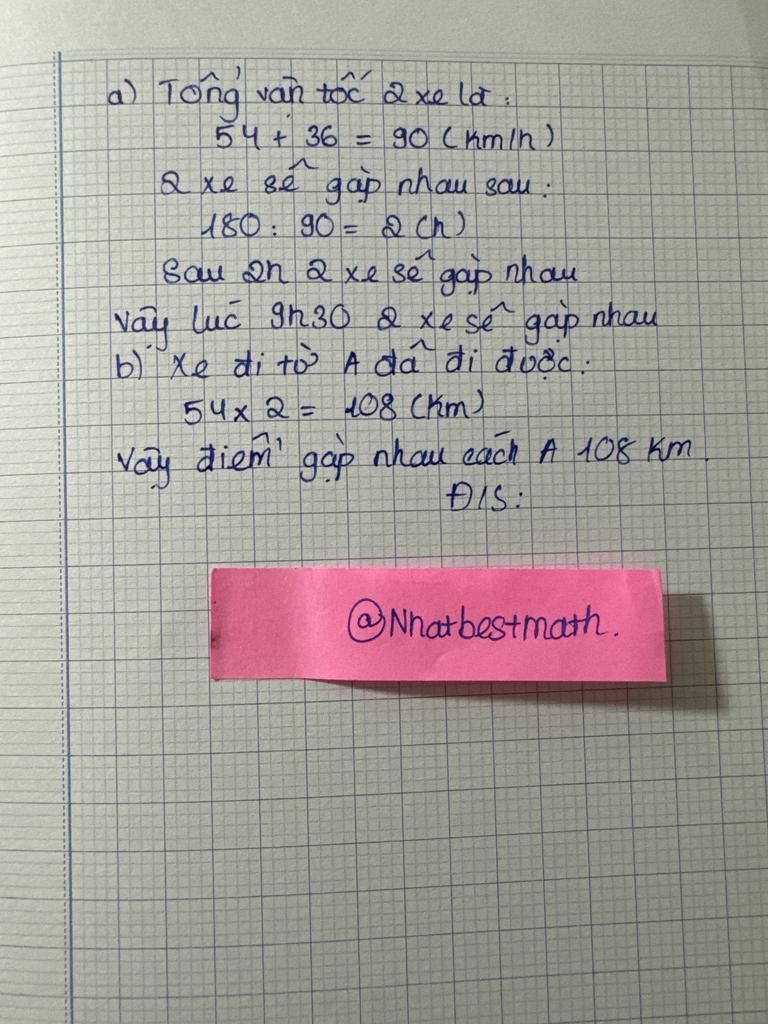 a) Tổng vận tốc 2 xe là:
54 + 36 = 90 (km/h)
2 xe sẽ gặp nhau sau:
180 : 90 = 2 (h)
Sau 2h 2 xe sẽ gặp nhau
Vậy lúc 9h30 2 xe sẽ gặp nhau
b) Xe đi từ A đã đi được:
54 x 2 = 108 (km)
Vậy điểm gặp nhau cách A 108 km.
Đ/S:
@Nhatbestmath.